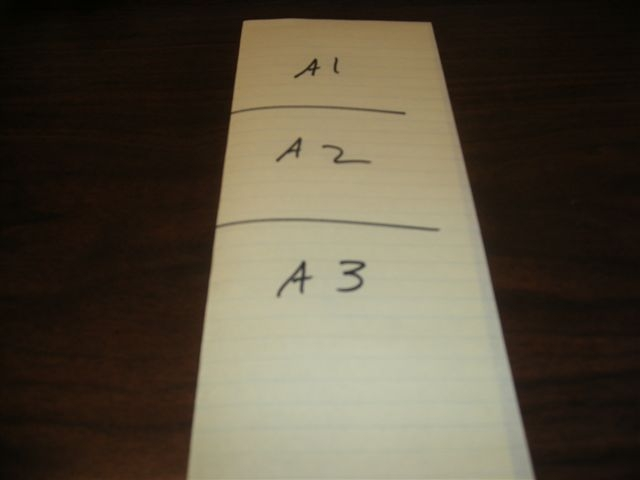 A1
A2
A3